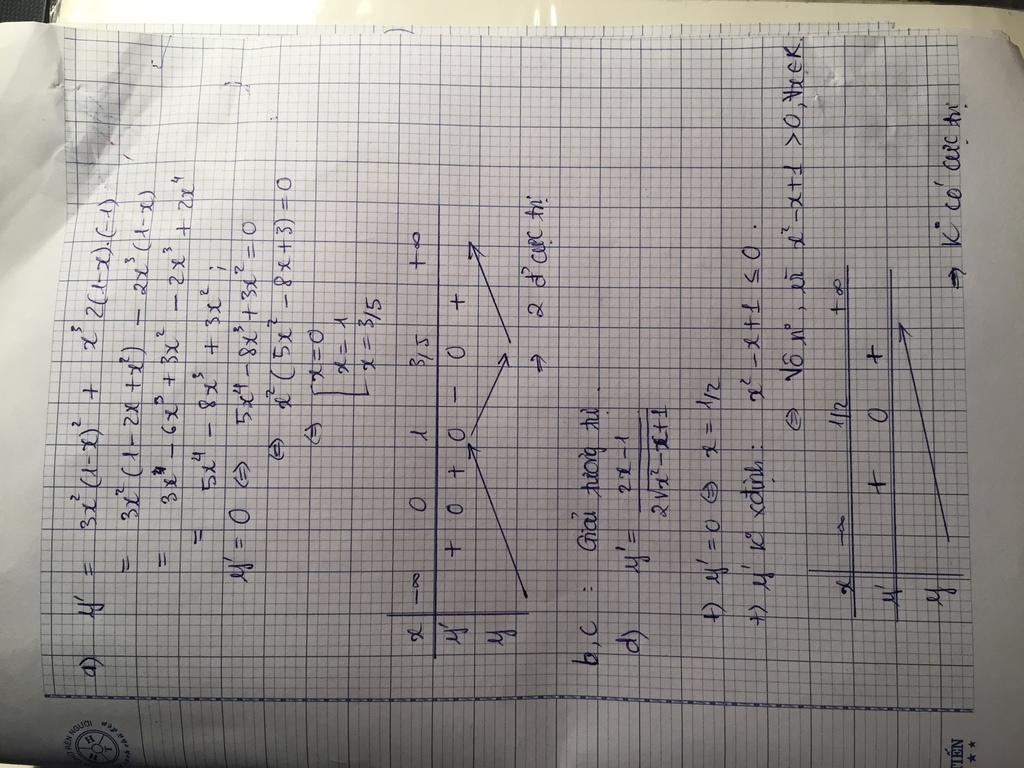 a) y' = 3x² (1-x)² + x³ 2(1-x).(-1)
= 3x² (1 - 2x + x²) - 2x³ (1-x)
= 3x⁴ - 6x³ + 3x² - 2x³ + 2x⁴
= 5x⁴ - 8x³ + 3x²
y' = 0 ⇔ 5x⁴ - 8x³ + 3x² = 0
⇔ x² (5x² - 8x + 3) = 0
⇔ [ x = 0
x = 1
x = 3/5
x -∞ 0 1 3/5 +∞
y' + 0 + 0 - 0 +
y
⇒ 2 đ' cực trị
b, c : Giải tương tự.
d) y' = (2x - 1) / (2√(x² - x + 1))
+) y' = 0 ⇔ x = 1/2
+) y' k° xđịnh : x² - x + 1 ≤ 0.
⇔ Vô n°, vì x² - x + 1 > 0, ∀x ∈ R.
x -∞ 1/2 +∞
y' + 0 +
y
⇒ K° có cực trị
TIẾN